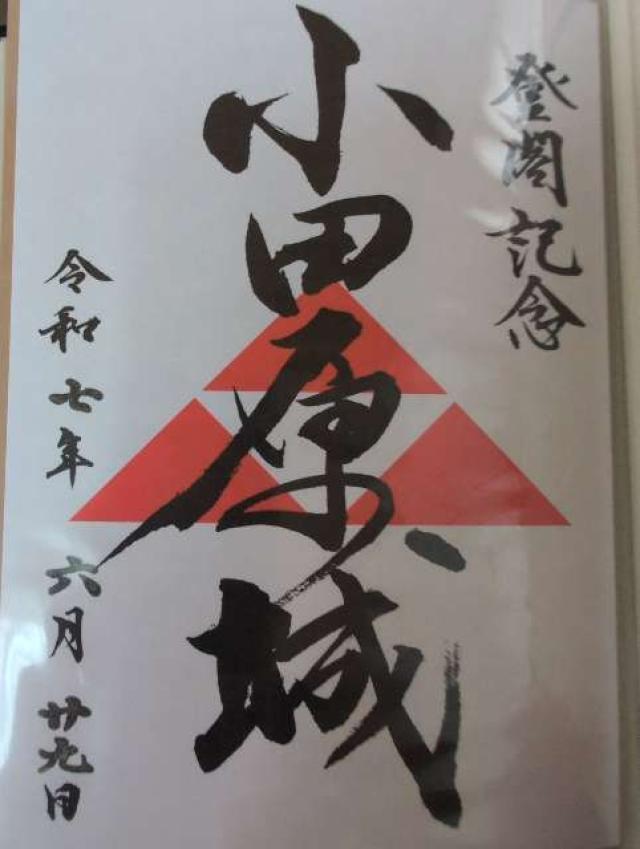 登閣記念
小田原城
令和七年 六月 廿九日